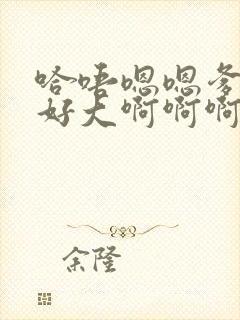 哈唔嗯嗯爹
好大啊啊啊
余隆